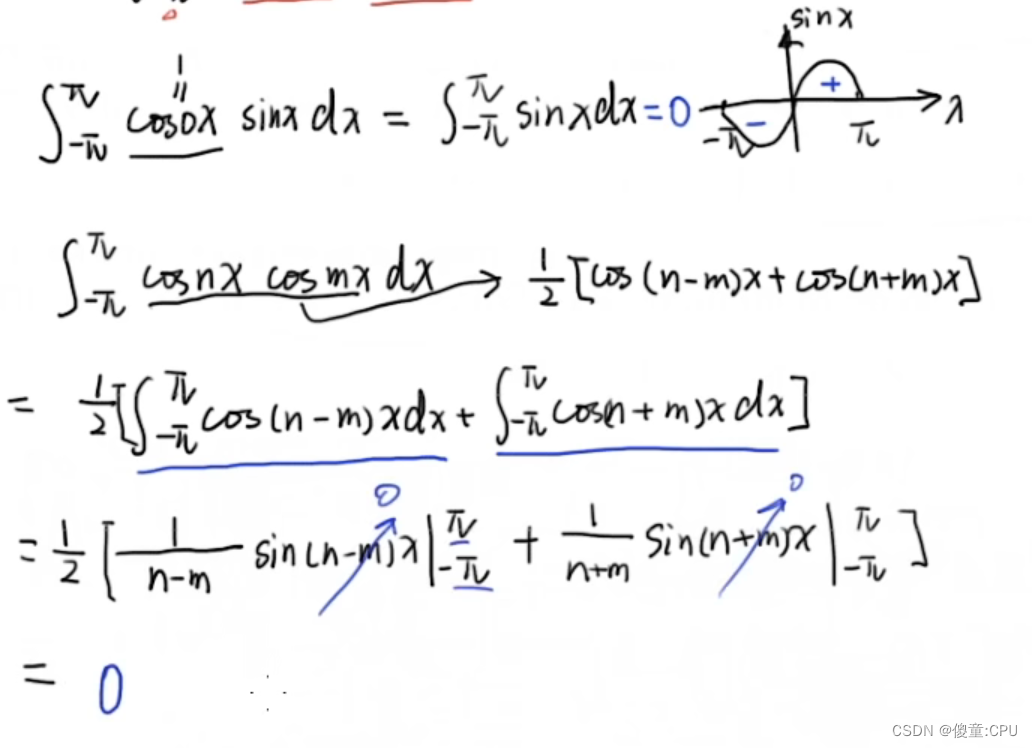 ∫_{-π}^{π} cos0x sinx dx = ∫_{-π}^{π} sinx dx = 0
1
=
sinx
+
−
-π
π
x
∫_{-π}^{π} cosnx cosmx dx → 1/2 [cos(n-m)x + cos(n+m)x]
= 1/2 [∫_{-π}^{π} cos(n-m)x dx + ∫_{-π}^{π} cos(n+m)x dx]
= 1/2 [1/(n-m) sin(n-m)x |_{-π}^{π} + 1/(n+m) sin(n+m)x |_{-π}^{π}]
0
0
= 0
CSDN @傻童:CPU